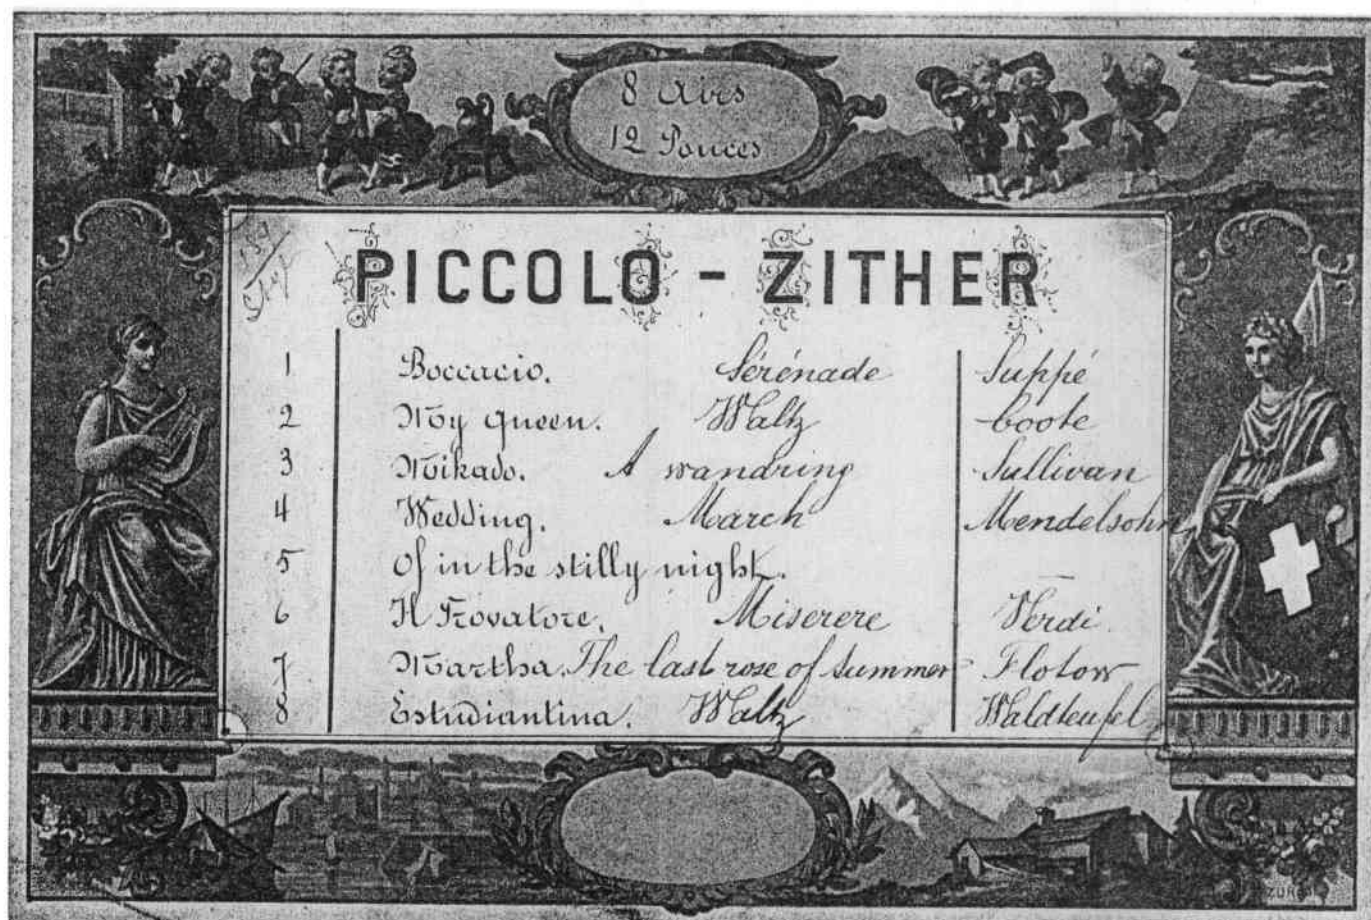 8 Airs
12 Pouces
PICCOLO - ZITHER
1 Boccacio. Sérénade Suppé
2 My queen. Waltz Coote
3 Mikado. A wandring Sullivan
4 Wedding. March Mendelsohn
5 Of in the stilly night.
6 Il Trovatore. Miserere Verdi
7 Martha. The last rose of Summer Flotow
8 Estudiantina. Waltz Waldteufel